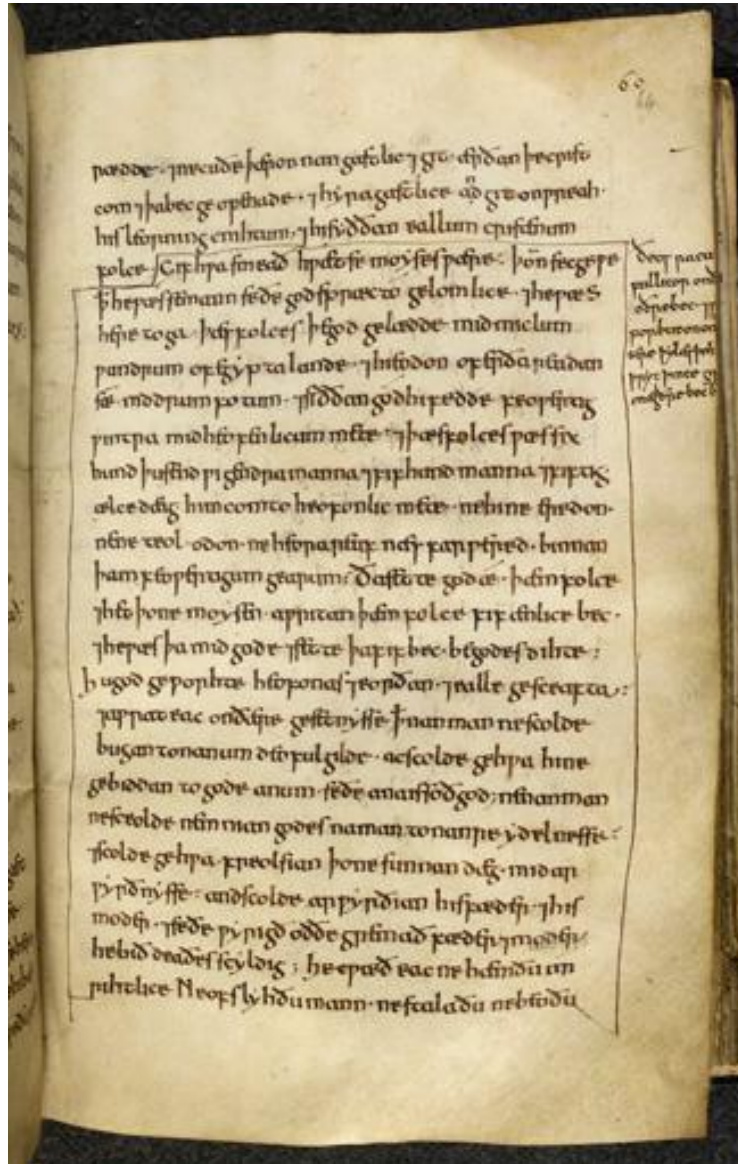 rædde · ⁊ne cuðe þæron nan gastlic ⁊git · ærðan þe crist
com ⁊þa bec geopenade · ⁊hyra gastlice andgit onwreah ·
his leorningcnihtum · ⁊hi syððan eallum cristenum
folce Gif hwa smeað hwæt se moyses wære : þon̄ secge we
ꝥ he wæs sum man se ðe god spræc to gelomlice · ⁊he wæs
heretoga · þæs folces þe god gelædde mid miclum
wundrum of egypta lande · ⁊hi eodon ofer ða readan
sæ · mid drium fotum · ⁊siððan god hi fedde feowertig
wintra mid heofenlicum mete · ⁊þæs folces wæs six
hund þusend wigendra manna ⁊fifhund manna ⁊fiftig
ælce dæg him com to heofonlic mete · ne hi ne eredon ·
ne ne teolodon · ne heora reaf næs forwered · binnan
þam feowertigum gearum; Ða sette god æ · þam folce
⁊het þone moysen · awritan þam folce fif ænlice bec ·
⁊he wæs þa mid gode ⁊sette þa fif bec · be godes dihte :
hu god geworhte heofonas ⁊eorðan · ⁊ealle gesceafta :
⁊awrat eac on ðære gesetnysse ꝥ nan man ne scolde
bugan to nanum deofulgilde · ac scolde gehwa hine
gebiddan to gode anum · se ðe ana is soð god ; ne nan man
ne sceolde nemnian godes naman to nanre ydelnesse :
⁊scolde gehwa · freolsian þone sunnan dæg · mid ar
wyrðnysse : and scolde arwyrðian his fæder · ⁊his
moder · ⁊se ðe wyrigð oððe gremað fæder ⁊moder
he bið deades scyldig ; he cwæð eac ne hæm ðu un
rihtlice Ne ofslyh ðu mann · ne stala ðu ne beo ðu
60